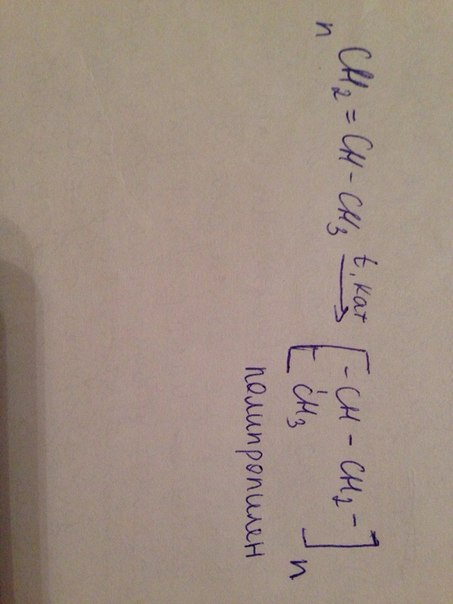 n CH₂ = CH - CH₃ t, кат → [-CH - CH₂-]n
CH₃
полипропилен